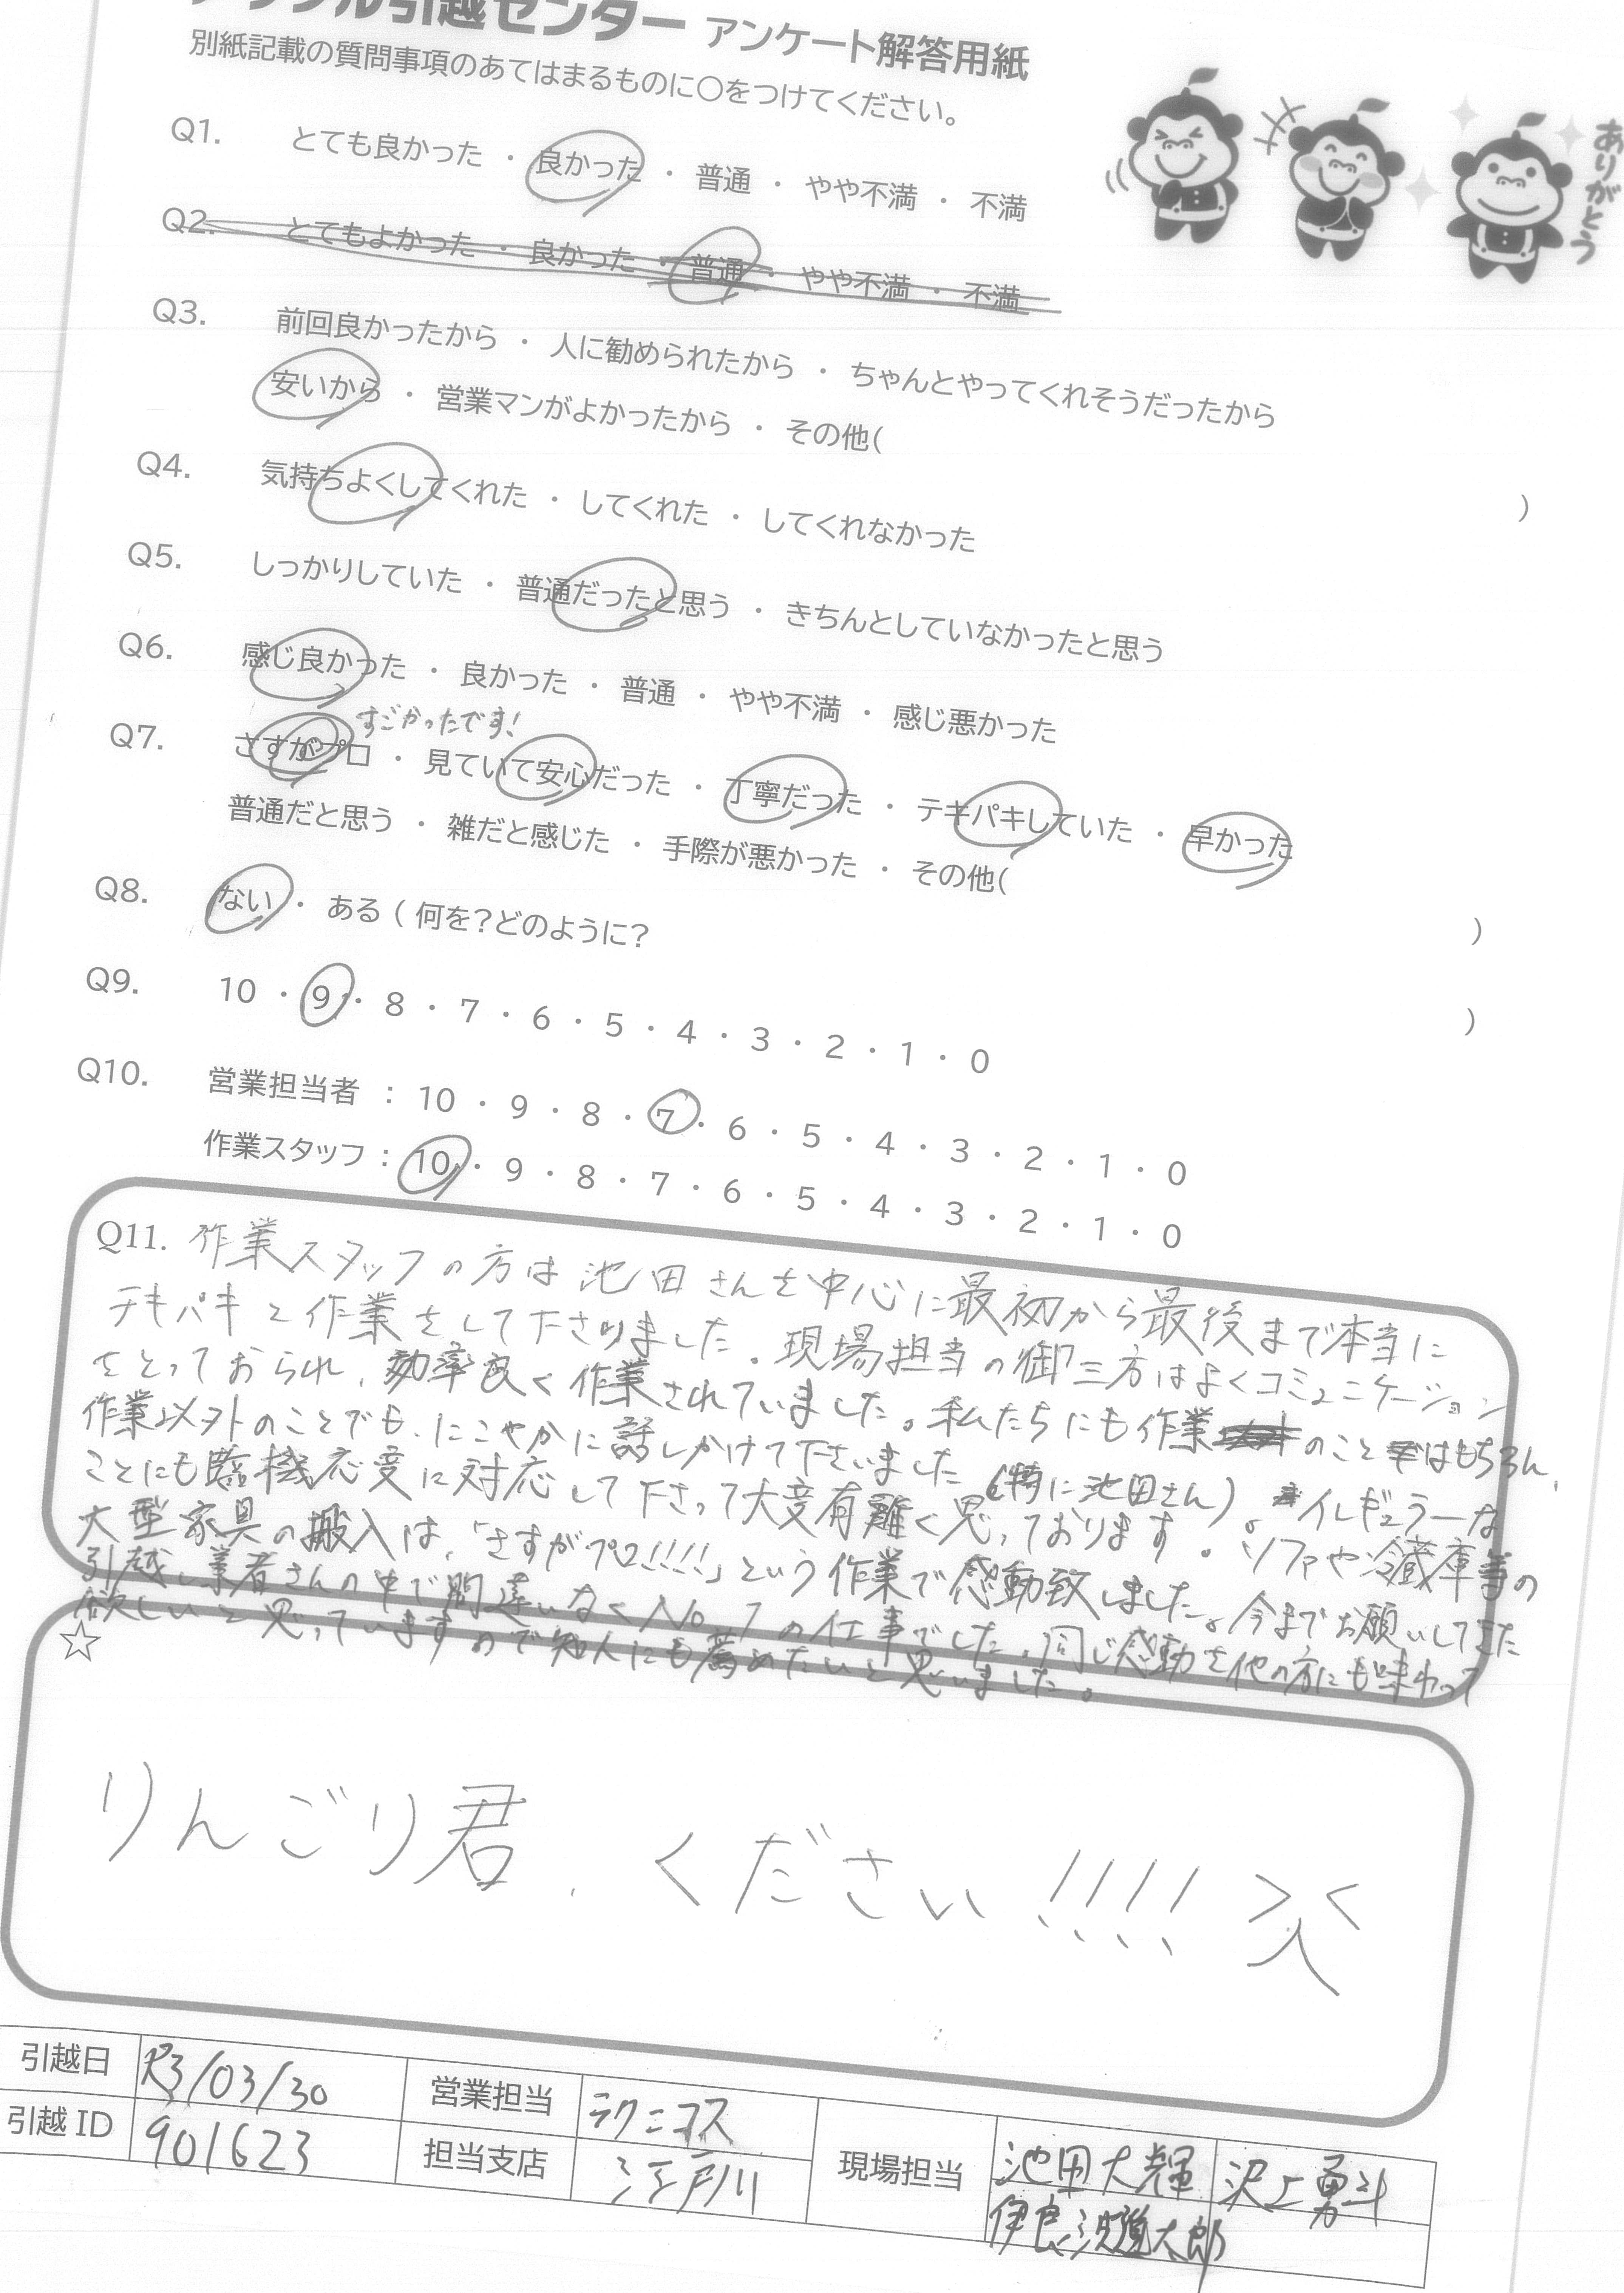 引越センター アンケート解答用紙
別紙記載の質問事項のあてはまるものに○をつけてください。
ありがとう
Q1. とても良かった ・ 良かった ・ 普通 ・ やや不満 ・ 不満
Q2. とてもよかった ・ 良かった ・ 普通 ・ やや不満 ・ 不満
Q3. 前回良かったから ・ 人に勧められたから ・ ちゃんとやってくれそうだったから
安いから ・ 営業マンがよかったから ・ その他( )
Q4. 気持ちよくしてくれた ・ してくれた ・ してくれなかった
Q5. しっかりしていた ・ 普通だったと思う ・ きちんとしていなかったと思う
Q6. 感じ良かった ・ 良かった ・ 普通 ・ やや不満 ・ 感じ悪かった
すごかったです!
Q7. さすがプロ ・ 見ていて安心だった ・ 丁寧だった ・ テキパキしていた ・ 早かった
普通だと思う ・ 雑だと感じた ・ 手際が悪かった ・ その他( )
Q8. ない ・ ある ( 何を?どのように? )
Q9. 10 ・ 9 ・ 8 ・ 7 ・ 6 ・ 5 ・ 4 ・ 3 ・ 2 ・ 1 ・ 0
Q10. 営業担当者 : 10 ・ 9 ・ 8 ・ 7 ・ 6 ・ 5 ・ 4 ・ 3 ・ 2 ・ 1 ・ 0
作業スタッフ : 10 ・ 9 ・ 8 ・ 7 ・ 6 ・ 5 ・ 4 ・ 3 ・ 2 ・ 1 ・ 0
Q11. 作業スタッフの方は池田さんを中心に最初から最後まで本当に
テキパキと作業をして下さりました。現場担当の御三方はよくコミュニケーション
をとっておられ、効率良く作業されていました。私たちにも作業のことはもちろん、
作業以外のことでも、にこやかに話しかけて下さいました(特に池田さん)。イレギュラーな
ことにも臨機応変に対応して下さって大変有難く思っております。ソファや冷蔵庫等の
大型家具の搬入は、「さすがプロ!!!!」という作業で感動致しました。今までお願いしてきた
引越し業者さんの中で間違いなくNo.1の仕事でした。同じ感動を他の方にも味わって
欲しいと思っていますので知人にも薦めたいと思いました。
☆
りんごり君、ください!!!! ><
引越日 R3/03/30 営業担当 ラクニコス 現場担当 池田大輝 沢上勇斗
引越 ID 901623 担当支店 江戸川 伊良波龍太郎